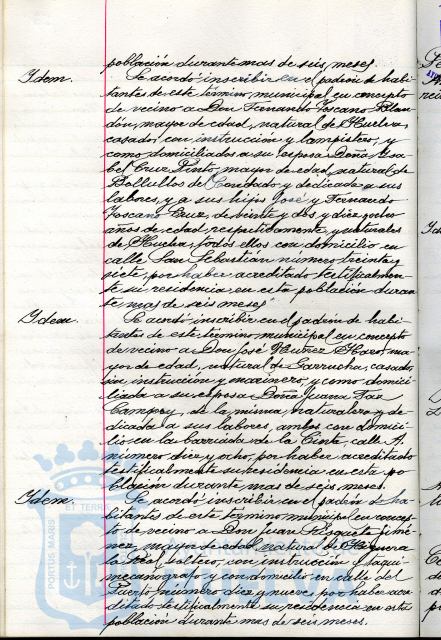 población durante mas de seis meses.
Idem. Se acordó inscribir en el padrón de habi-
tantes de este término municipal en concepto
de vecino a Don Fernando Toscano Blan-
dón, mayor de edad, natural de Huelva,
casado, con instrucción y lampistero, y
como domiciliados a su esposa Doña Isa-
bel Cruz Pinto, mayor de edad, natural de
Bollullos del Condado y dedicada a sus
labores, y a sus hijos José y Fernando
Toscano Cruz, de veinte y dos y diez y ocho
años de edad, respectivamente, y naturales
de Huelva, todos ellos con domicilio en
calle San Sebastián número treinta y
siete, por haber acreditado testificalmen-
te su residencia en esta población duran-
te mas de seis meses
Idem. Se acordó inscribir en el padrón de habi-
tantes de este término municipal en concepto
de vecino a Don José Núñez Haro, ma-
yor de edad, natural de Garrucha, casado,
sin instrucción y marinero, y como domici-
liada a su esposa Doña Juana
de la misma naturaleza y de-
dicada a sus labores, ambos con domici-
lio en la barriada de la Cinta, calle A.
número diez y ocho, por haber acreditado
testificalmente su residencia en esta po-
blación durante mas de seis meses.
Idem. Se acordó inscribir en el padrón de ha-
bitantes de este término municipal en concep-
to de vecino a Don Juan Jimé-
nez, mayor de edad, natural de Higuera
la Real, soltero, con instrucción y taqui-
mecanógrafo y con domicilio en calle del
Puerto número diez y nueve, por haber acre-
ditado testificalmente su residencia en esta
población durante mas de seis meses.
PORTUS MARIS ET TERRAE